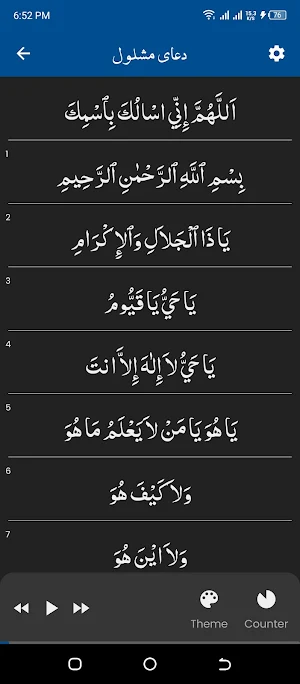 6:52 PM
15.3 K/s
76
دعای مشلول
اَللَّهُمَّ إِنِّي اسْالُكَ بِٱسْمِكَ
1
بِسْمِ ٱللَّهِ ٱلرَّحْمٰنِ ٱلرَّحِيمِ
2
يَا ذَا ٱلْجَلاَلِ وَٱلإِكْرَامِ
3
يَا حَيُّ يَا قَيُّومُ
4
يَا حَيُّ لاَ إِلٰهَ إِلاَّ انتَ
5
يَا هُوَ يَا مَنْ لاَ يَعْلَمُ مَا هُوَ
6
وَلاَ كَيْفَ هُوَ
7
وَلاَ ايْنَ هُوَ
Theme
Counter